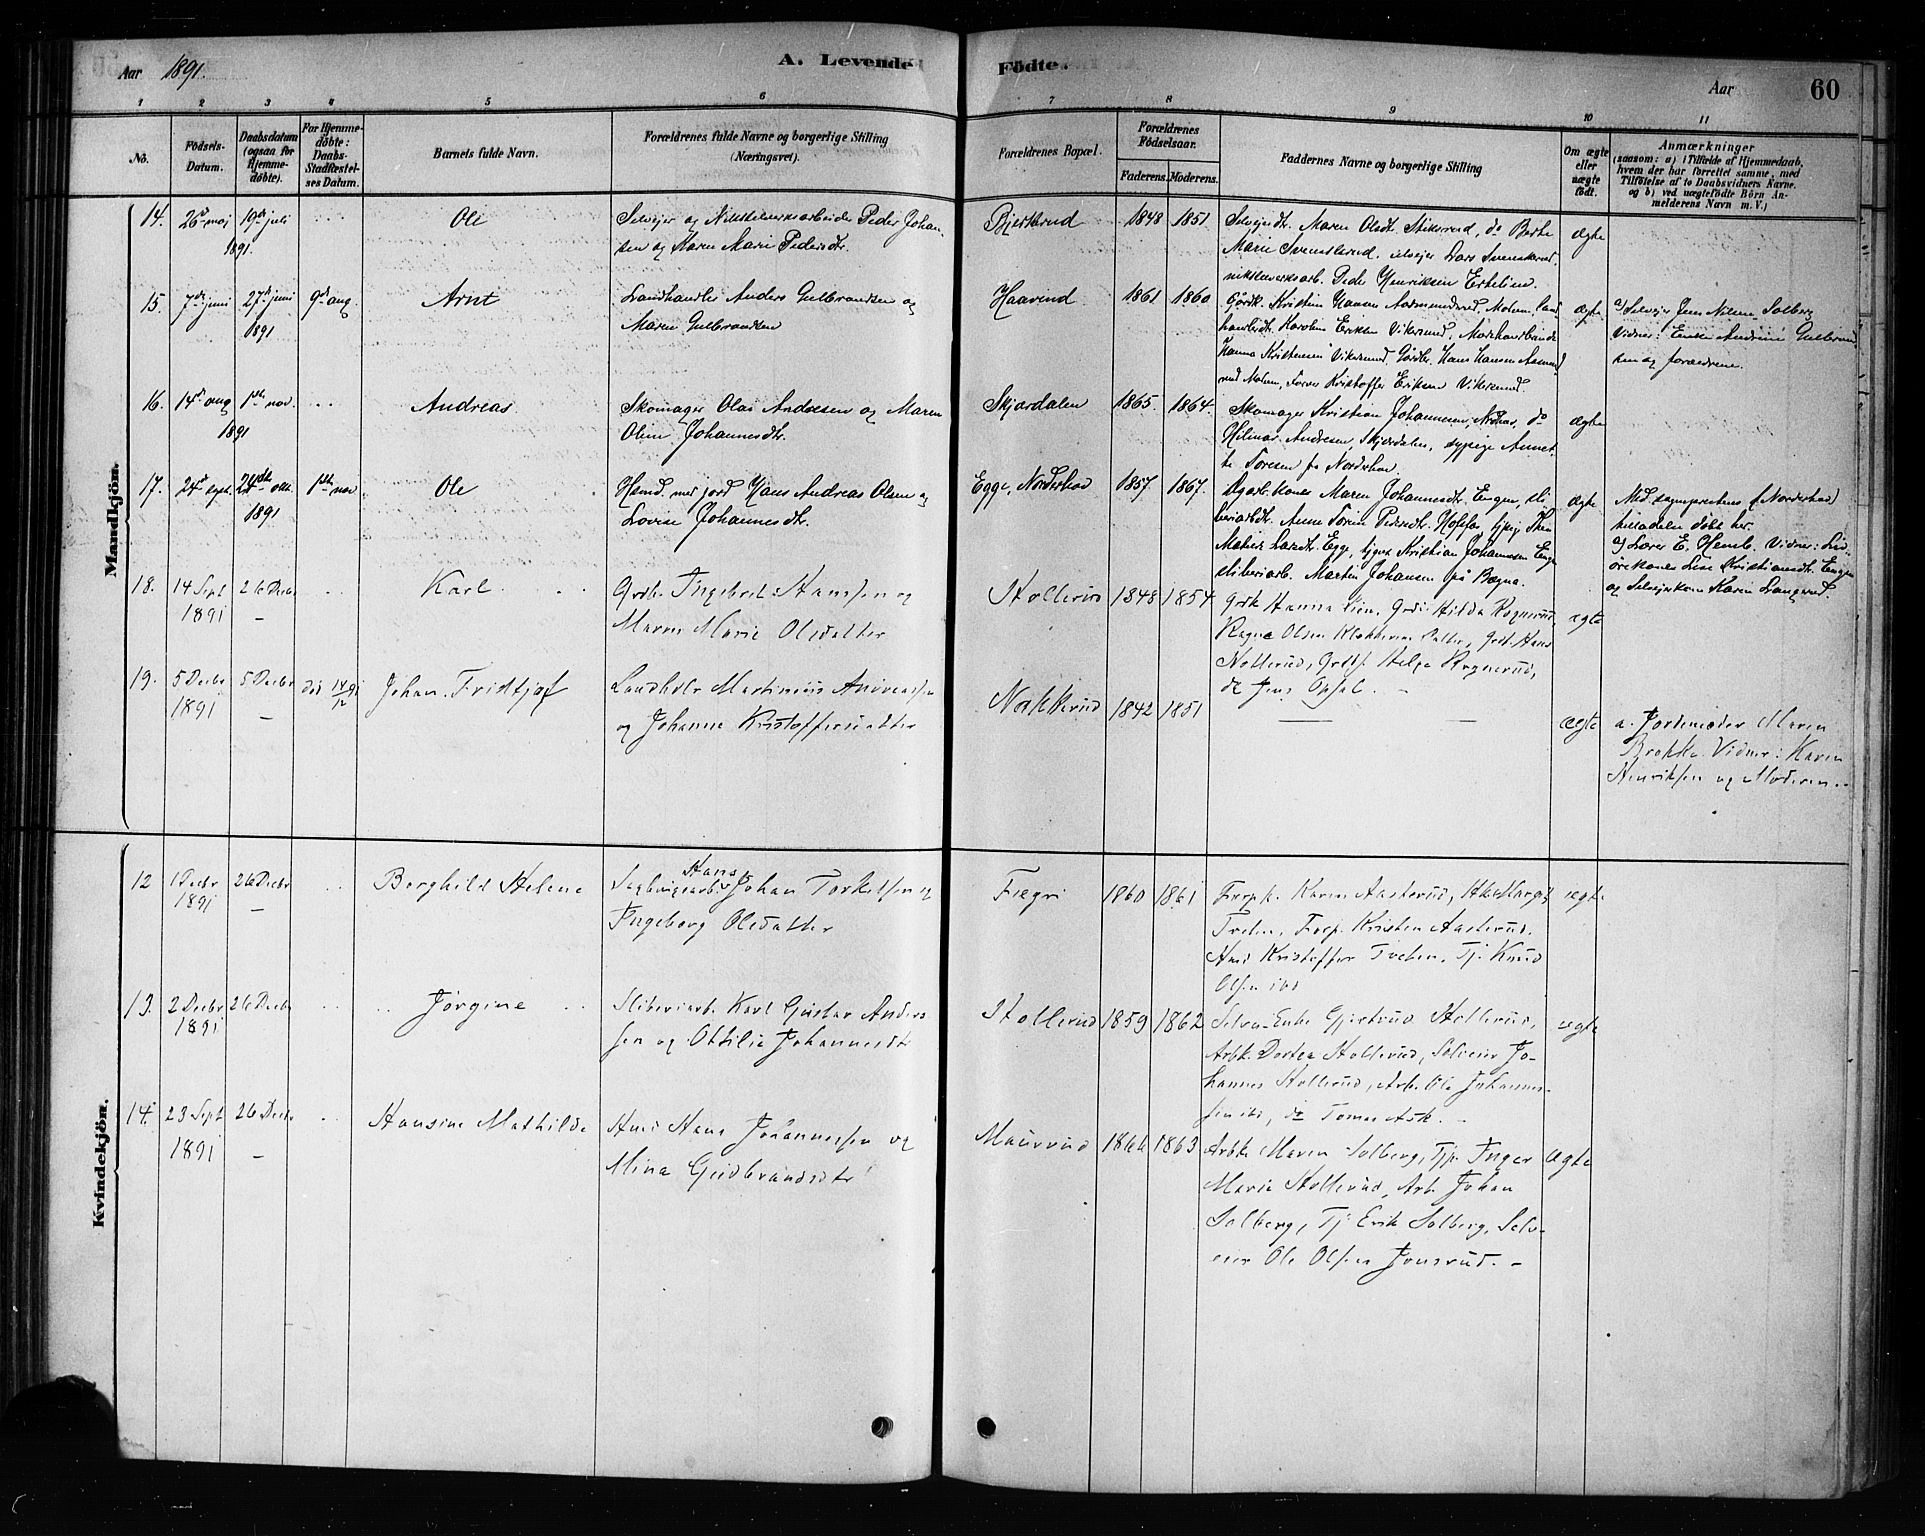 Aar 1891.
A. Levende Födte.
Aar 60
1 2 3 4 5 6 7 8 9 10 11
No.
Födsels-Datum.
Daabsdatum (ogsaa for Hjemme-döbte).
For Hjemme-döbte: Daabs-Stadfæstel-ses Datum.
Barnets fulde Navn.
Forældrenes fulde Navne og borgerlige Stilling (Næringsvei).
Forældrenes Bopæl.
Forældrenes Födselsaar.
Faderens. Moderens.
Faddernes Navne og borgerlige Stilling
Om ægte eller uægte födt.
Anmærkninger
(saasom: a) i Tilfælde af Hjemmedaab,
hvem der har forrettet samme, med
Tilföielse af to Daabsvidners Navne.
og b) ved uægtefödte Börn An-
melderens Navn m. V.)
Mandkjön.
14. 26de maj 1891 19de juli Ole
Selvejer og Nikkelverksarbeider Peder Johan-
sen og Karen Marie Pedersdtr.
Bjerkerud 1848 1851.
Selvejerdt. Maren Olsdt. Stikserud, do Berte
Marie Svenskerud, selvejer Lars Svenskerud,
nikkelverksarb. Peder Henriksen Ertelien.
ægte
15. 7de juni 27de juni 1891 9de aug. Arnt
Landhandler Anders Gulbrandsen og
Maren Gulbrandsen
Haavind 1861 1860.
Gdrdk. Kristine Hansen Aasmundrud, Modum, Land-
handlerdt. Karoline Eriksen Vikersund,
Hanna Kristensen Vikersund, Gdrdbr. Hans Hansen Aasmund-
rud Modum, Kristoffer Eriksen Vikersund.
ægte
a) Selvejer Jens Nilsen Solberg
Vidner: Enken Andrine Gulbrand-
sen og forældrene.
16. 14de aug 1ste nov. 1891 Andreas.
Skomager Olai Andresen og Maren
Oline Johannesdtr.
Skjærdalen 1865. 1864.
Skomager Kristian Johannesen, Norderhov, do
Hilmar Andresen, Skjærdalen, sypige Annet-
te Toresen fra Norderhov.
ægte
17. 24de sept. 24de okt. 1891 1ste nov Ole
Husmd. med jord Hans Andreas Olsen og
Lovise Johannesdtr.
Egge, Norderhov 1857. 1867.
Dgarb.kones Maren Johannesdtr. Engen, sli-
beriarbdt. Anne Torine Pedersdtr. Hofsfos, tjpig Thea
Mathea Larsdtr. Egge, ligesaa Kristian Johannesen Engen
sliberiarb. Martin Johansen fra Bægna.
ægte
Med sogneprestens (f Norderhov)
tilladelse døbt her.
a) Lærer E. Hemb. Vidner:
Lise Kristiansdtr. Engen
og Selvejerkone Karen Langerud.
18. 14 Sept 1891 26 Decbr – Karl.
Grdb. Ingebret Hanssen og
Maren Marie Olsdatter
Hollerud 1848 1854
Grdk Hanna Lien, Grdk Hilda Rognerud,
Ragna Olsen Datter, Grdb. Hans
Nollerud, Grdb. Helge Rognerud,
do Jens Opsal. –
ægte
19. 5 Decbr 1891 5 Decbr – död 14/12 91 Johan Fridtjof
Landhdlr Martinius Andreassen
og Johanne Kristoffersdatter
Nokkerud 1842 1851
ægte
a. Jordemoder Maren
Brække. Vidner: Karen
Henriksen og Moderen. –
Kvindekjön.
12 1 Decbr 1891 26 Decbr – Borghild Helene
Sagbrugsarb. Hans Johan Torkelsen og
Ingeborg Olsdatter
Fægri 1860 1861
Forpk. Karen Aasterud,
Tveten, Forp. Kristen Aasterud,
Kristoffer Tveten, Tj. Knud
Olsen ibd
ægte
13. 2 Decbr 1891 26 Decbr Jørgine
Sliberiarb. Karl Gustav Anders-
sen og Othilie Johannesdtr
Hollerud 1859 1862
Selve.-Enke Gjertrud Hollerud,
Arbk. Dortea Hollerud, Selveier Jo-
hannes Hollerud, Arb. Ole Johannes-
sen ibd, do Tomas Ask. –
ægte
14. 23 Sept 1891 26 Decbr – Hansine Mathilde
Hans Johannessen og
Mina Gudbrandsdtr
Maurud 1866 1863
Arbk Maren Solberg, Tjp. Inger
Marie Hollerud, Arb. Johan
Solberg, Tj. Erik Solberg, Selv-
eier Ole Olsen Jonsrud. –
ægte